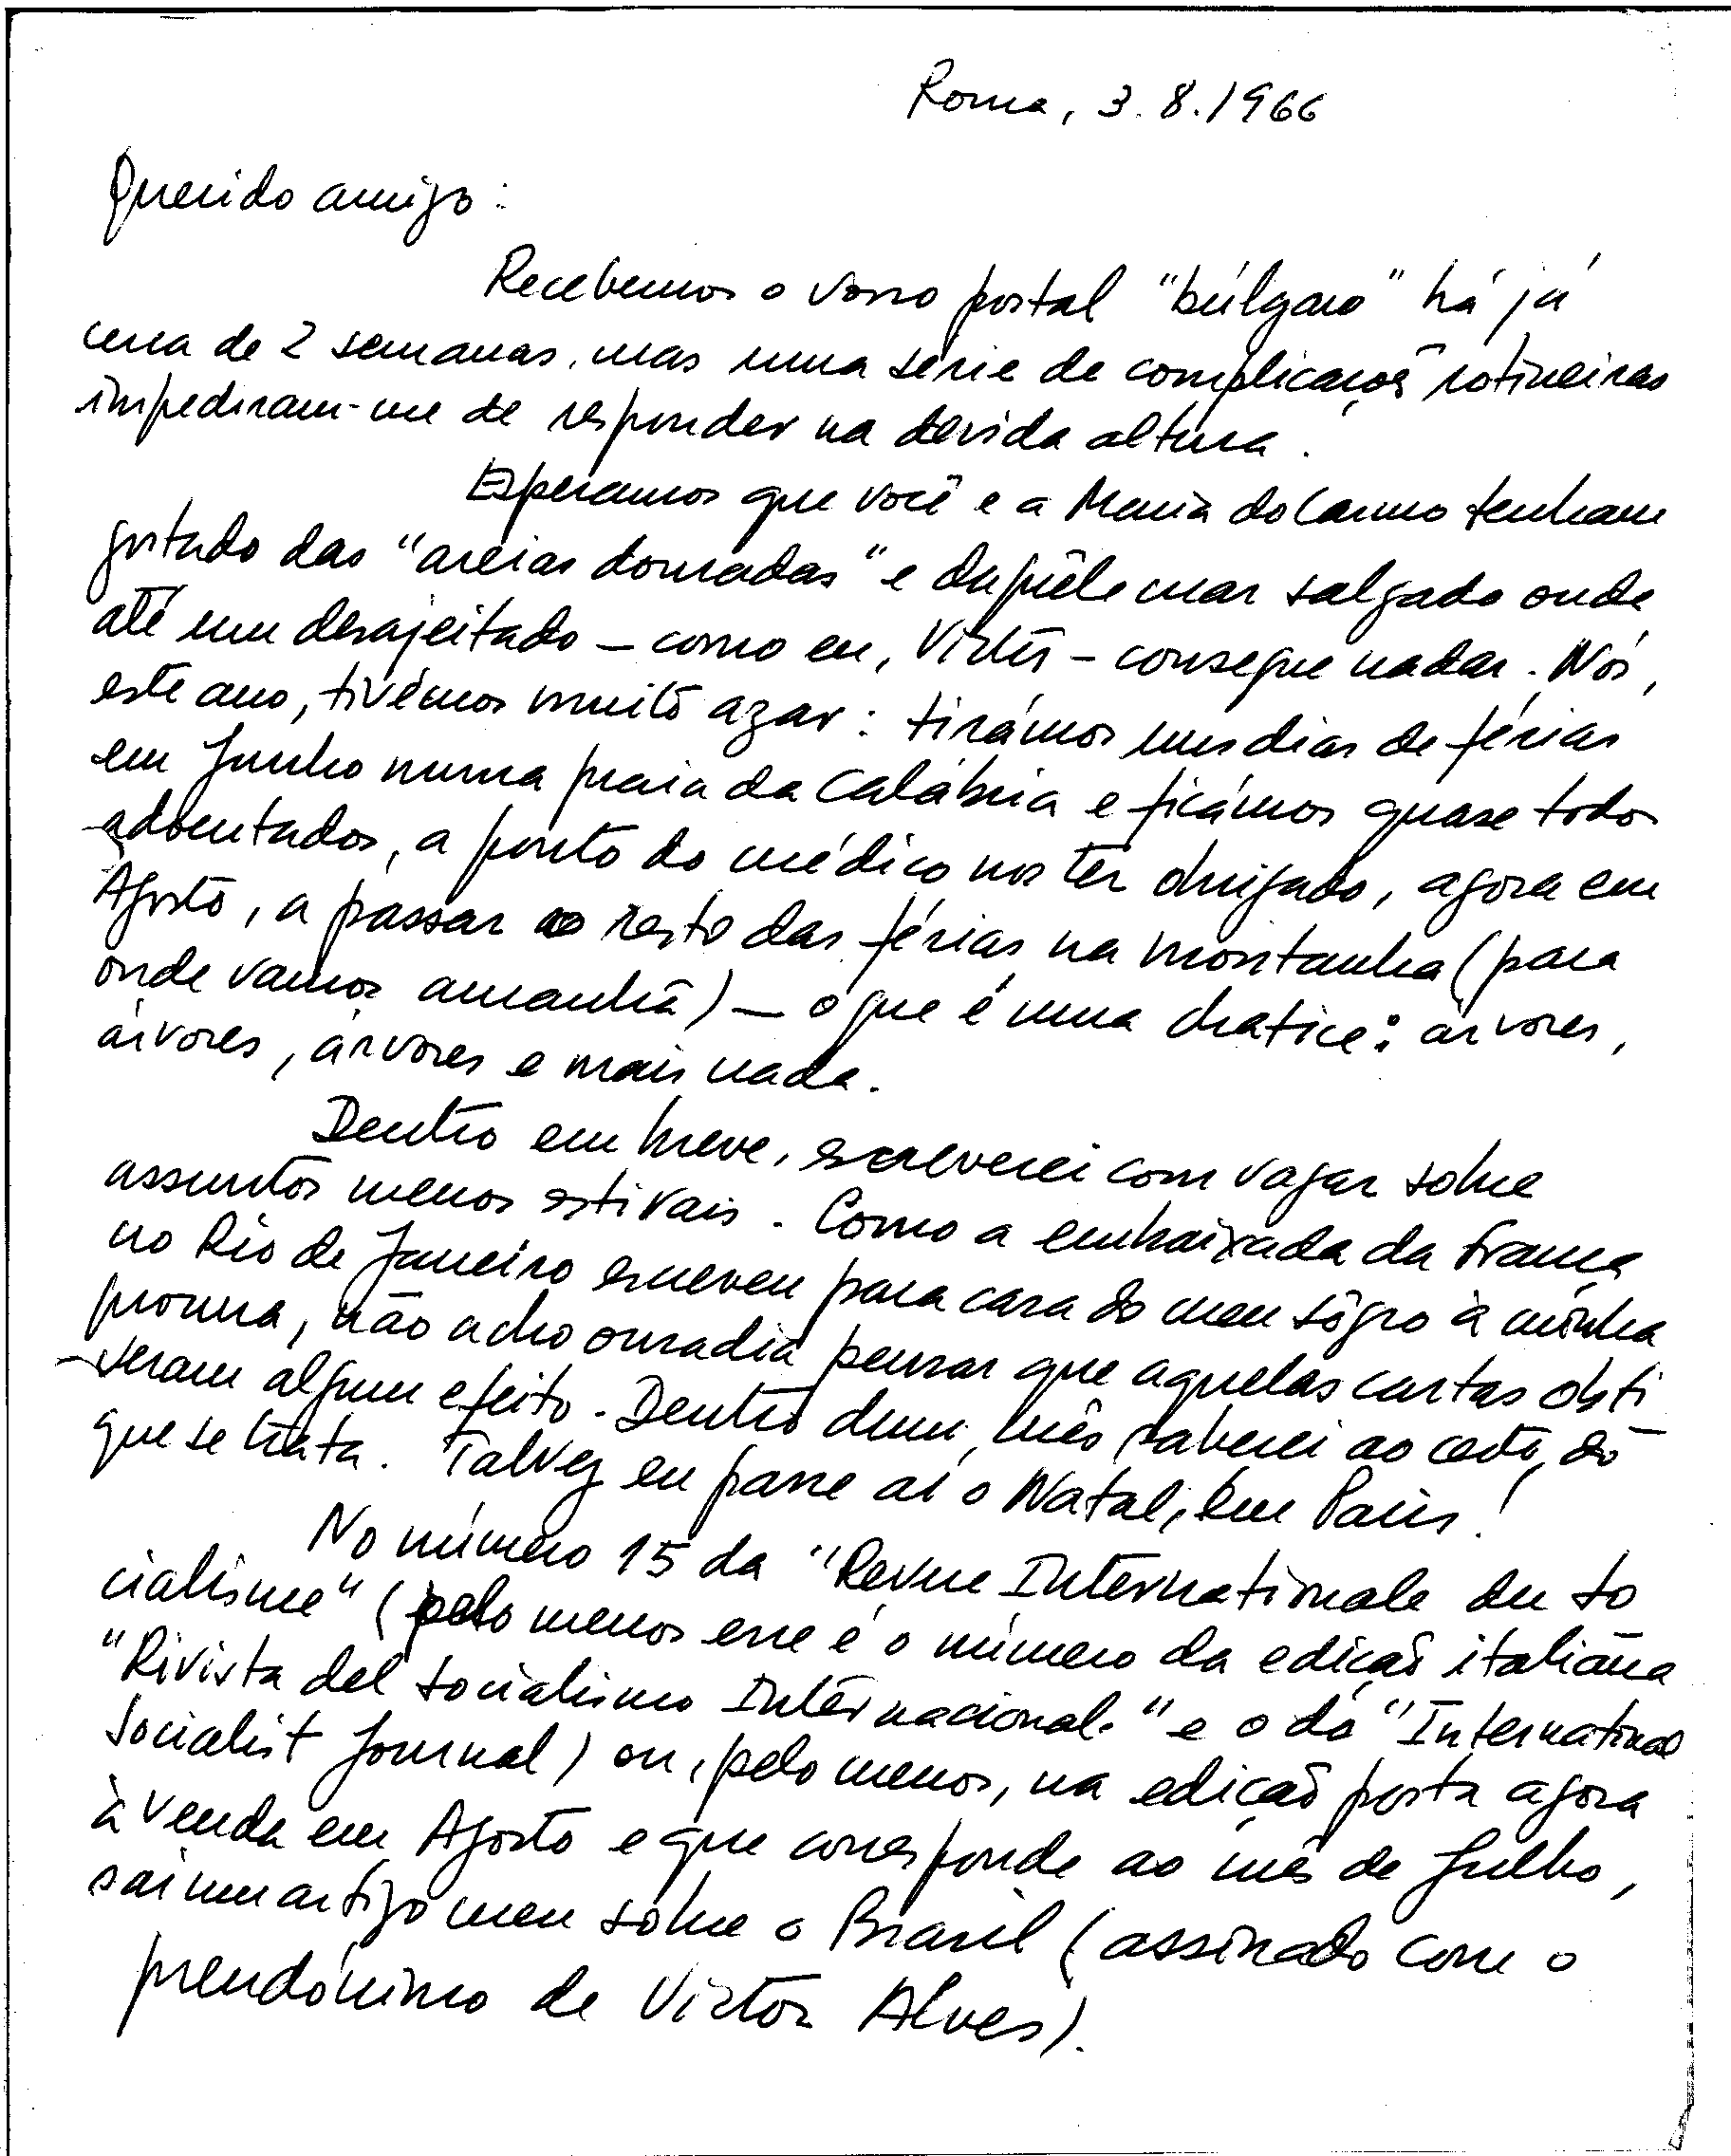 Roma, 3.8.1966
Querido amigo:
Recebemos o vosso postal "búlgaro" há já
cerca de 2 semanas, mas uma série de complicações rotineiras
impediram-me de responder na devida altura.
Esperamos que você e a Maria do Carmo tenham
gostado das "areias douradas" e daquêle mar salgado onde
até um desajeitado - como eu, Victor - consegue nadar. Nós,
este ano, tivémos muito azar: tirámos uns dias de férias
em Junho numa praia da Calábria e ficámos quase todos
adoentados, a ponto do médico nos ter obrigado, agora em
Agosto, a passar o resto das férias na montanha (para
onde vamos amanhã) - o que é uma chatice: árvores,
árvores, árvores e mais nada.
Dentro em breve, escreverei com vagar sobre
assuntos menos estivais. Como a embaixada da França
no Rio de Janeiro escreveu para casa do meu sôgro à minha
procura, não acho ousadia pensar que aquelas cartas obti
-veram algum efeito. Dentro dum mês saberei ao certo do
que se trata. Talvez eu passe aí o Natal, em Paris!
No número 15 da "Revue Internationale du So
cialisme" (pelo menos esse é o número da edição italiana
"Rivista del Socialismo Internacional." e o do "International
Socialist Journal) ou, pelo menos, na edição posta agora
à venda em Agosto e que corresponde ao mês de Julho,
sai um artigo meu sôbre o Brasil (assinado com o
pseudónimo de Victor Alves).